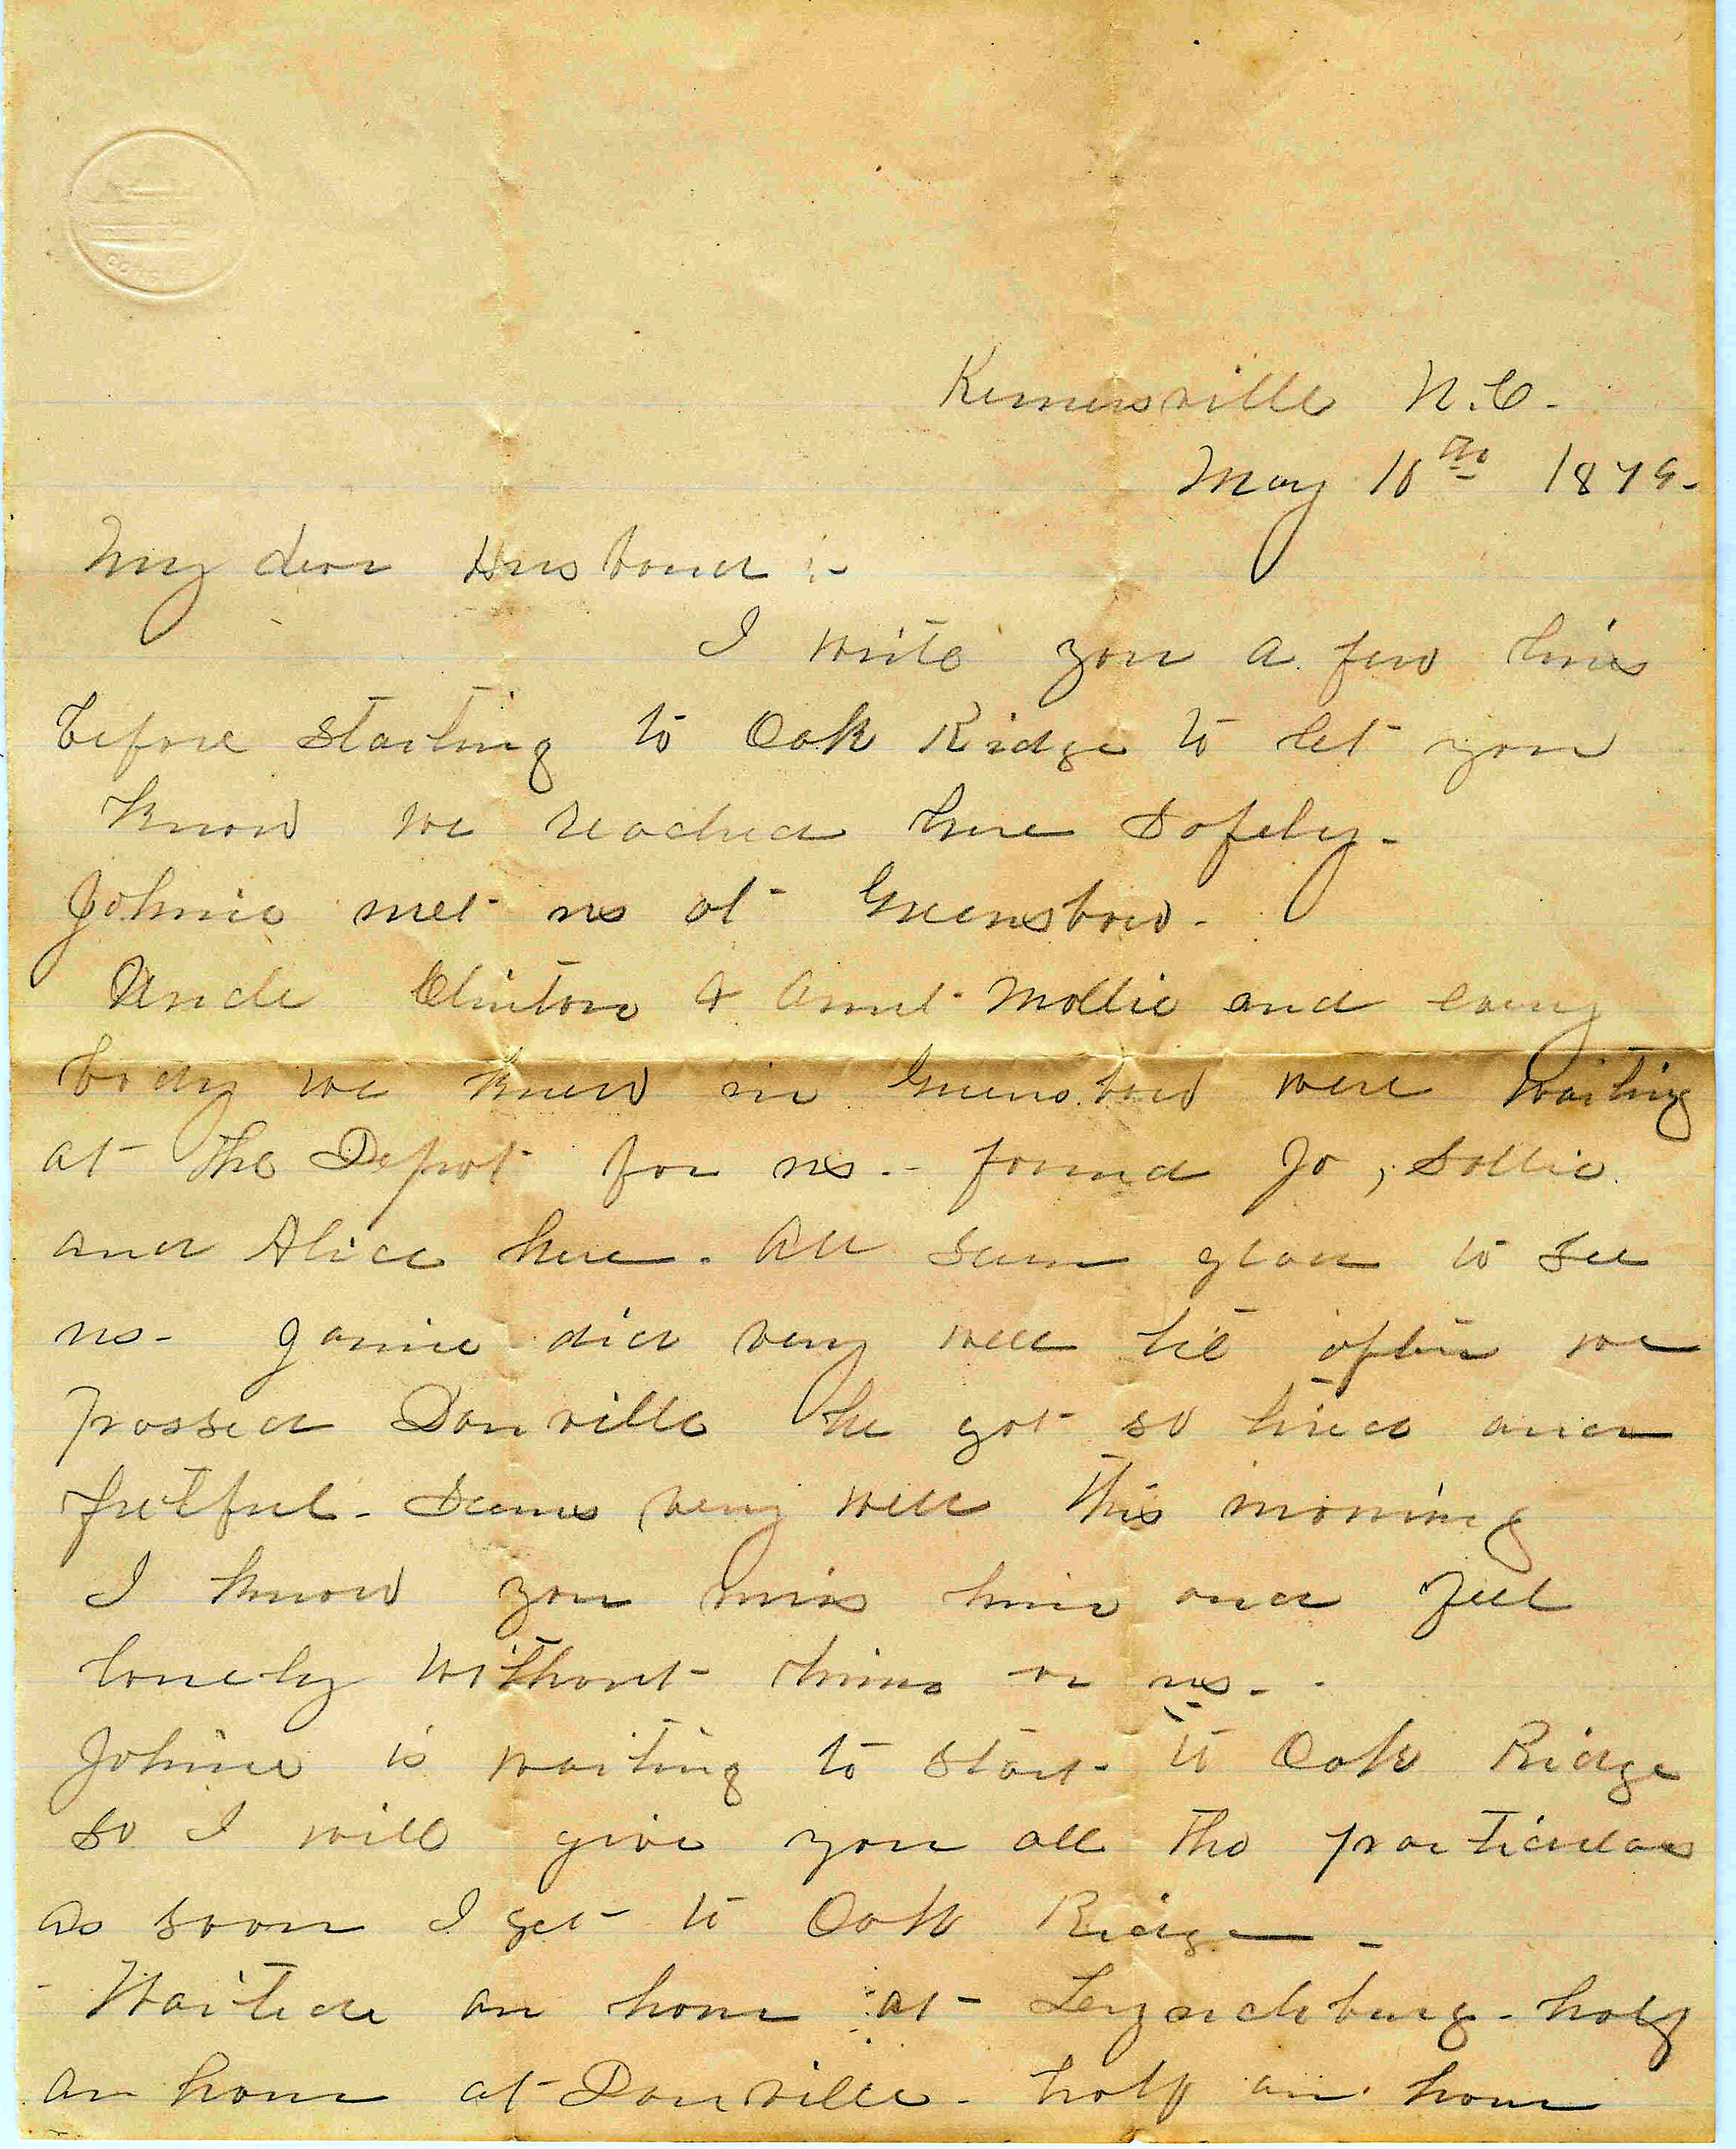 Kernersville N.C.
May 10th 1879.
My dear Husband :-
I write you a few lines
before starting to Oak Ridge to let you
know we reached here safely -
Johnie met us at Greensboro -
Uncle Clinton & Aunt Mollie and every
body we knew in Greensboro were waiting
at the Depot for us. - found Jo, Sallie
and Alice here. All seem glad to see
us - Janie did very well til after we
passed Danville he got so tired and
fretful - Seems very well this morning
I know you miss him and feel
lonely without him or us - .
Johnie is waiting to start to Oak Ridge
so I will give you all the particulars
as soon I get to Oak Ridge -
- Waited an hour at Lynchburg - half
an hour at Danville - half an hour